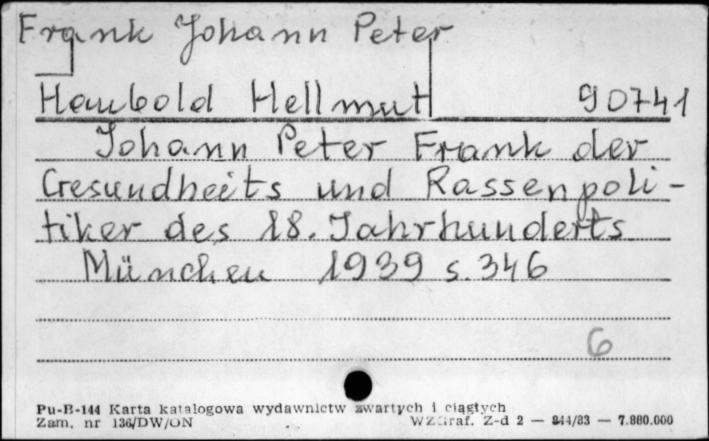 Frank Johann Peter
Haubold Hellmut 90741
Johann Peter Frank der
Gesundheits und Rassenpoli-
tiker des 18. Jahrhunderts
München 1939 s. 346
6
Pu-B-144 Karta katalogowa wydawnictw zwartych i ciągłych
Zam. nr 136/DW/ON WZGraf. Z-d 2 — 844/83 — 7.880.000